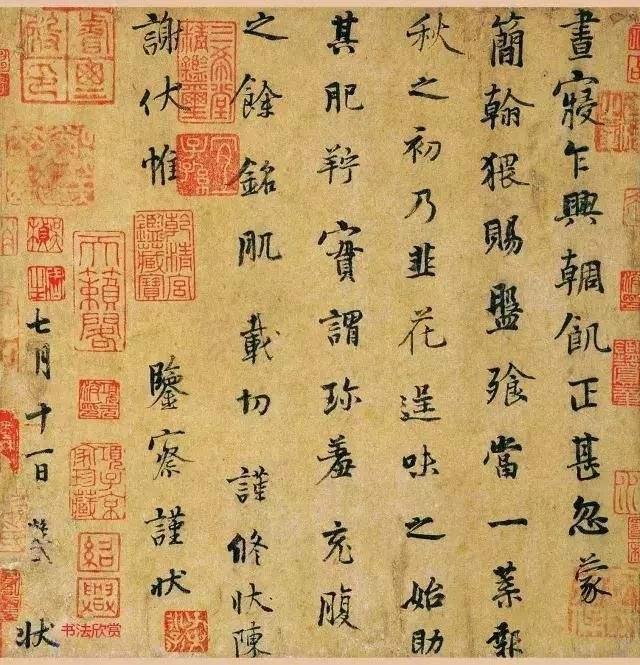 晝寢乍興輖飢正甚忽蒙
簡翰猥賜盤飧當一葉報
秋之初乃韭花逞味之始助
其肥羜實謂珍羞充腹
之餘銘肌載切謹修狀陳
謝伏惟 鑒察謹狀
七月十一日 狀
三希堂精鑑璽
宜子孫
乾清宮鑑藏寶
天籟閣
項子京家珍藏
紹興
书法欣赏